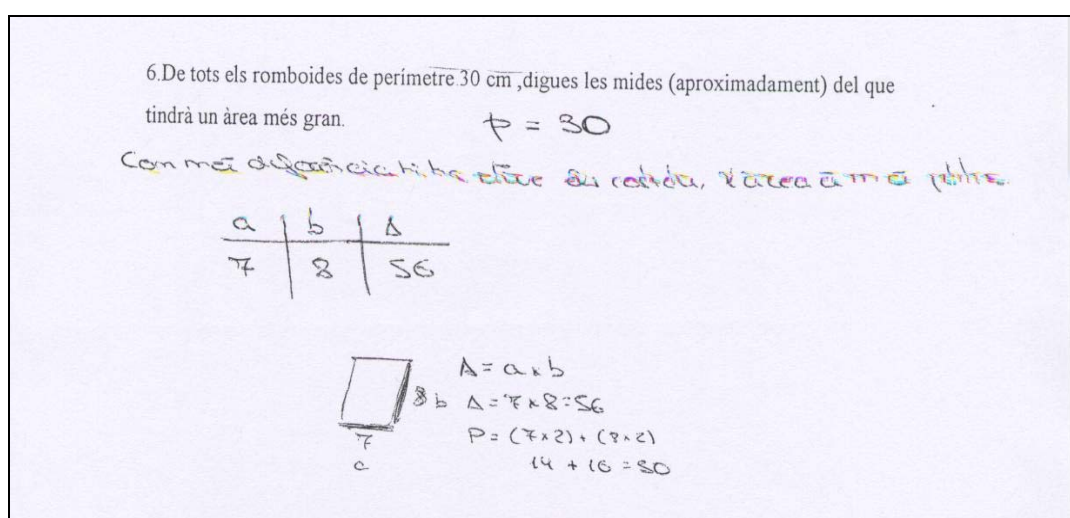 6.De tots els romboides de perímetre 30 cm ,digues les mides (aproximadament) del que
tindrà un àrea més gran.
P = 30
Con més diferència hi ha entre els costats, l'àrea és més petita.
a b A
7 8 56
A = a x b
8 b A = 7 x 8 = 56
7 P = (7x2) + (8x2)
a 14 + 16 = 30